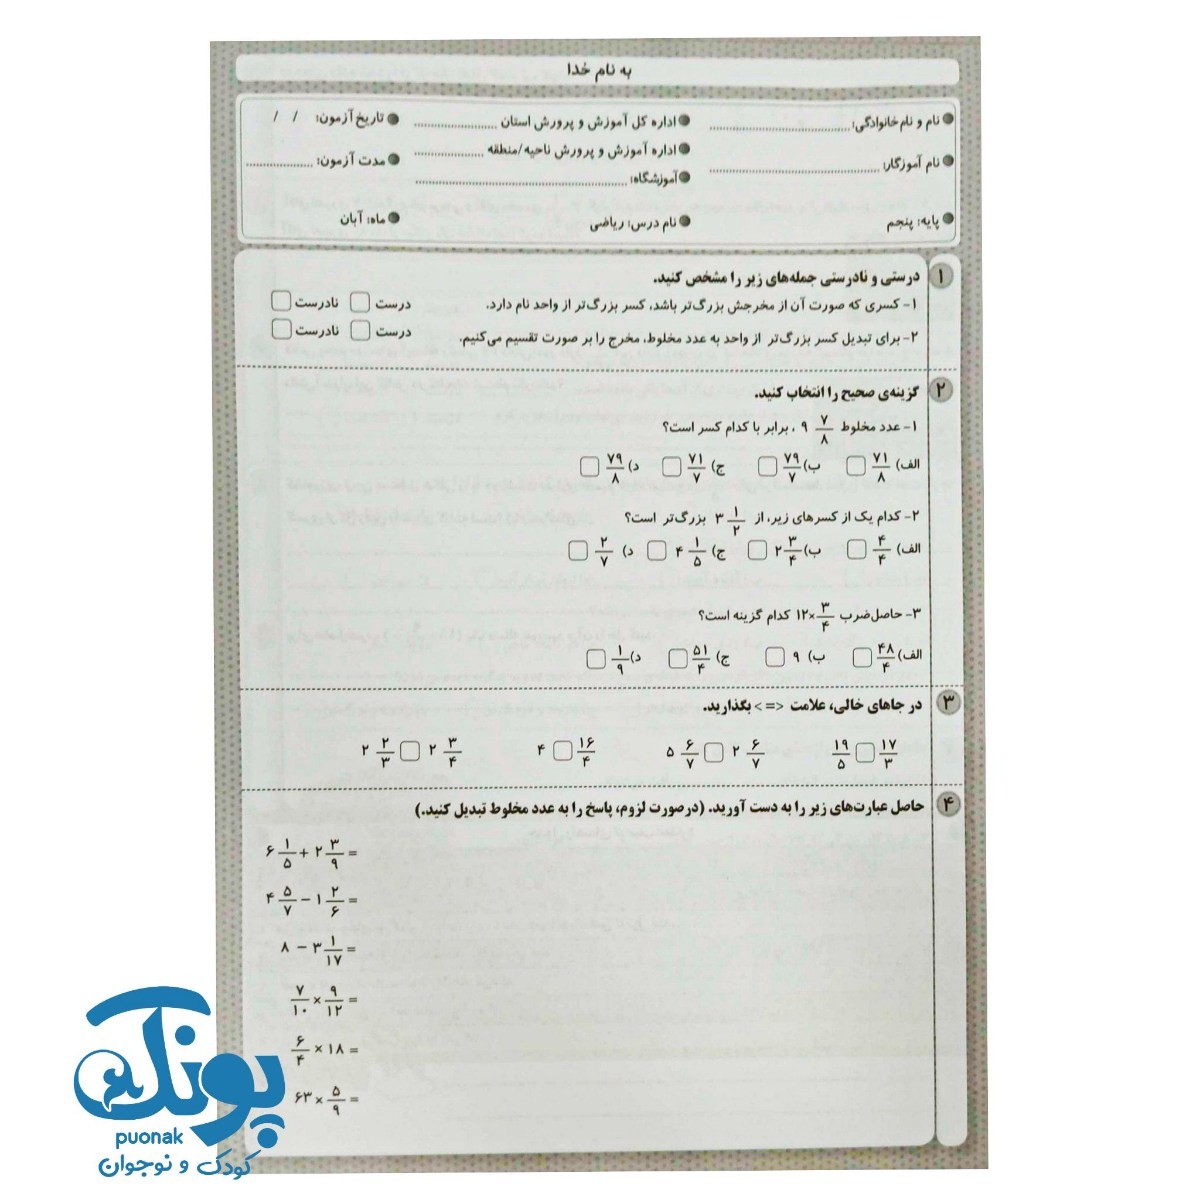 به نام خدا
نام و نام‌خانوادگی: ........................
اداره کل آموزش و پرورش استان ........................
تاریخ آزمون: / /
نام آموزگار: ........................
اداره آموزش و پرورش ناحیه/منطقه ........................
مدت آزمون: ........................
آموزشگاه: ........................
پایه: پنجم
نام درس: ریاضی
ماه: آبان
۱ درستی و نادرستی جمله‌های زیر را مشخص کنید.
۱- کسری که صورت آن از مخرجش بزرگ‌تر باشد، کسر بزرگ‌تر از واحد نام دارد. درست □ نادرست □
۲- برای تبدیل کسر بزرگ‌تر از واحد به عدد مخلوط، مخرج را بر صورت تقسیم می‌کنیم. درست □ نادرست □
۲ گزینه‌ی صحیح را انتخاب کنید.
۱- عدد مخلوط ۹ ۷/۸ ، برابر با کدام کسر است؟
الف) ۷۱/۸ □ ب) ۷۹/۷ □ ج) ۷۱/۷ □ د) ۷۹/۸ □
۲- کدام یک از کسرهای زیر، از ۳ ۱/۲ بزرگ‌تر است؟
الف) ۴/۴ □ ب) ۲ ۳/۴ □ ج) ۴ ۱/۵ □ د) ۲/۷ □
۳- حاصل‌ضرب ۱۲×۳/۴ کدام گزینه است؟
الف) ۴۸/۴ □ ب) ۹ □ ج) ۵۱/۴ □ د) ۱/۹ □
۳ در جاهای خالی، علامت <=> بگذارید.
۱۷/۳ □ ۱۹/۵
۲ ۶/۷ □ ۵ ۶/۷
۱۶/۴ □ ۴
۲ ۳/۴ □ ۲ ۲/۳
۴ حاصل عبارت‌های زیر را به دست آورید. (در صورت لزوم، پاسخ را به عدد مخلوط تبدیل کنید.)
۶ ۱/۵ + ۲ ۳/۹ =
۴ ۵/۷ − ۱ ۲/۶ =
۸ − ۳ ۱/۱۷ =
۷/۱۰ × ۹/۱۲ =
۶/۴ × ۱۸ =
۶۳ × ۵/۹ =
پونک
puonak
کودک و نوجوان